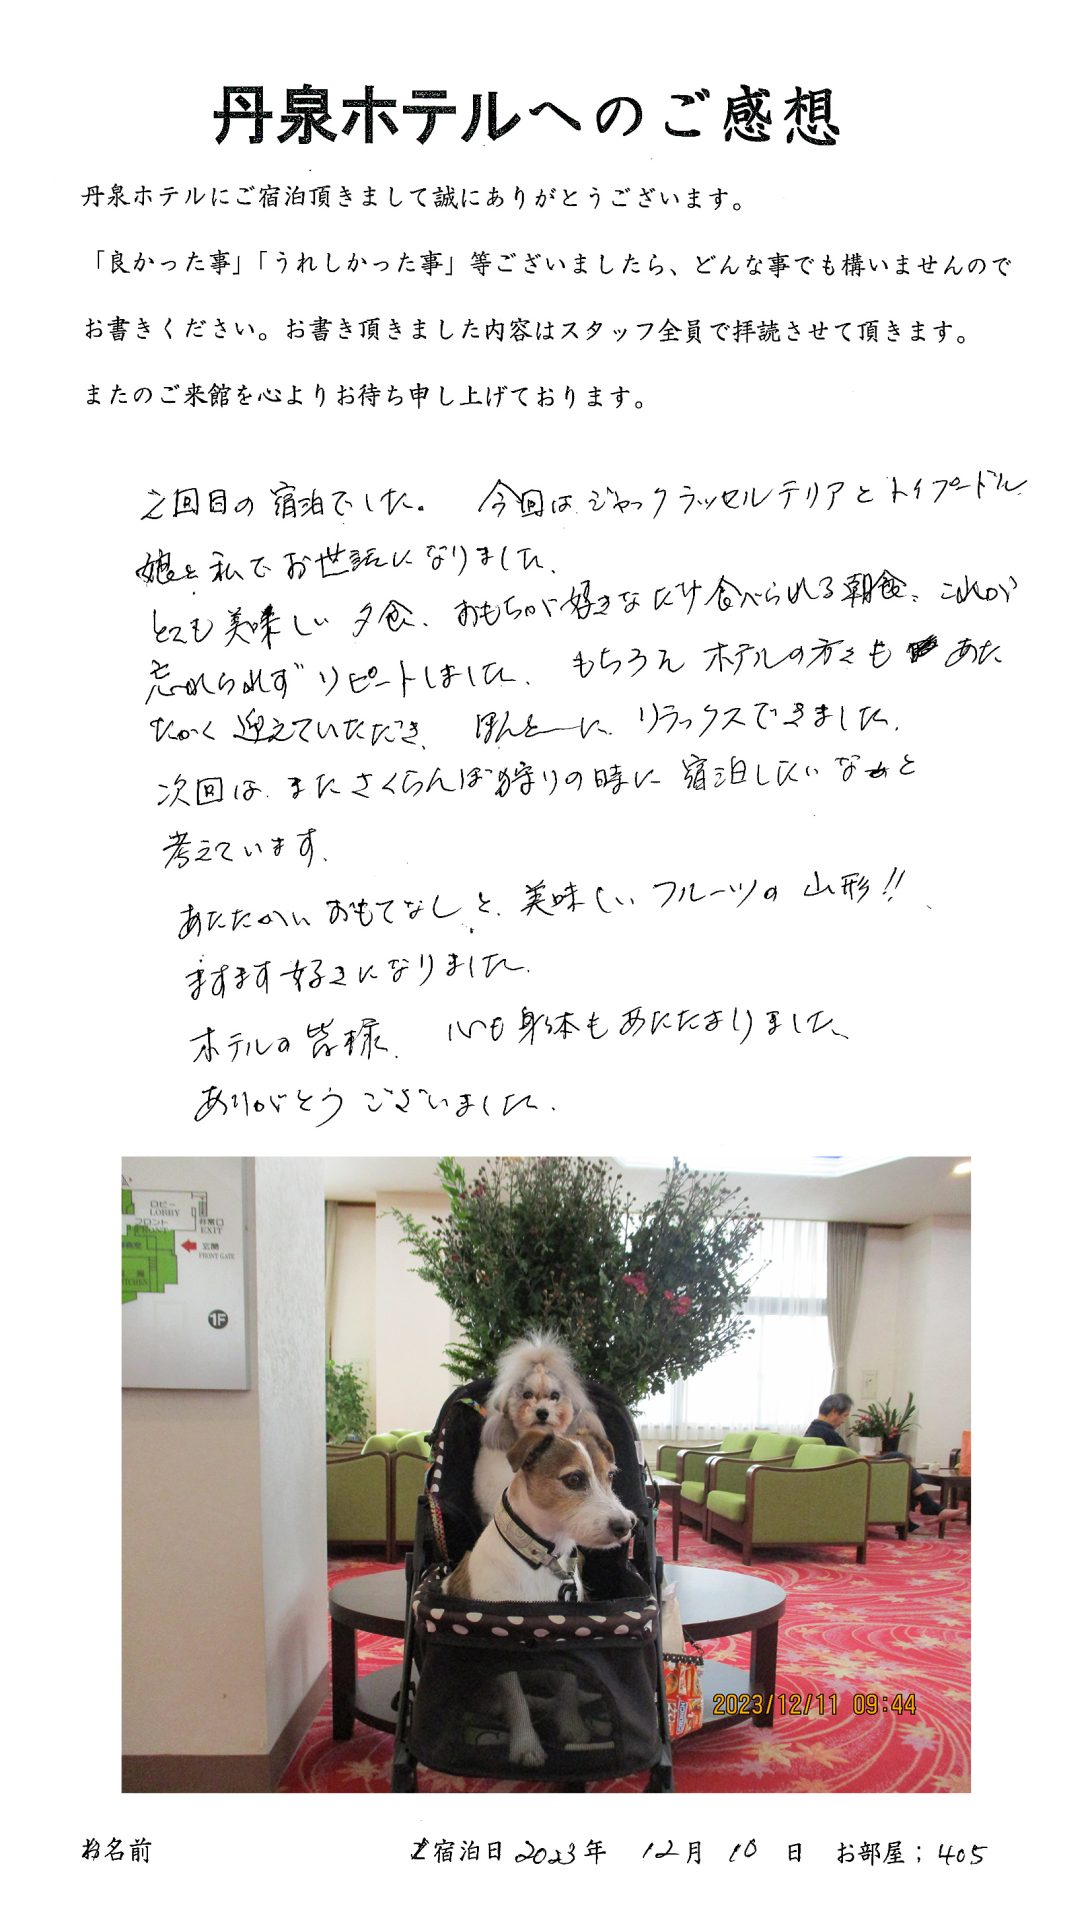 丹泉ホテルへのご感想
丹泉ホテルにご宿泊頂きまして誠にありがとうございます。
「良かった事」「うれしかった事」等ございましたら、どんな事でも構いませんので
お書きください。お書き頂きました内容はスタッフ全員で拝読させて頂きます。
またのご来館を心よりお待ち申し上げております。
2回目の宿泊でした。 今回はジャックラッセルテリアとトイプードル
娘と私でお世話になりました。
とても美味しい夕食、おもちが好きなだけ食べられる朝食、これが
忘れられずリピートしました。 もちろんホテルの方々もあた
たかく迎えていただき、ほんとーに、リラックスできました。
次回は、またさくらんぼ狩りの時に宿泊したいなぁと
考えています。
あたたかいおもてなしと、美味しいフルーツの山形!!
ますます好きになりました。
ホテルの皆様、心も身体もあたたまりました。
ありがとうございました。
ロビー
LOBBY
フロント
FRONT
非常口
EXIT
玄関
FRONT GATE
KITCHEN
1F
2023/12/11 09:44
お名前 ご宿泊日2023年 12月 10日 お部屋；405